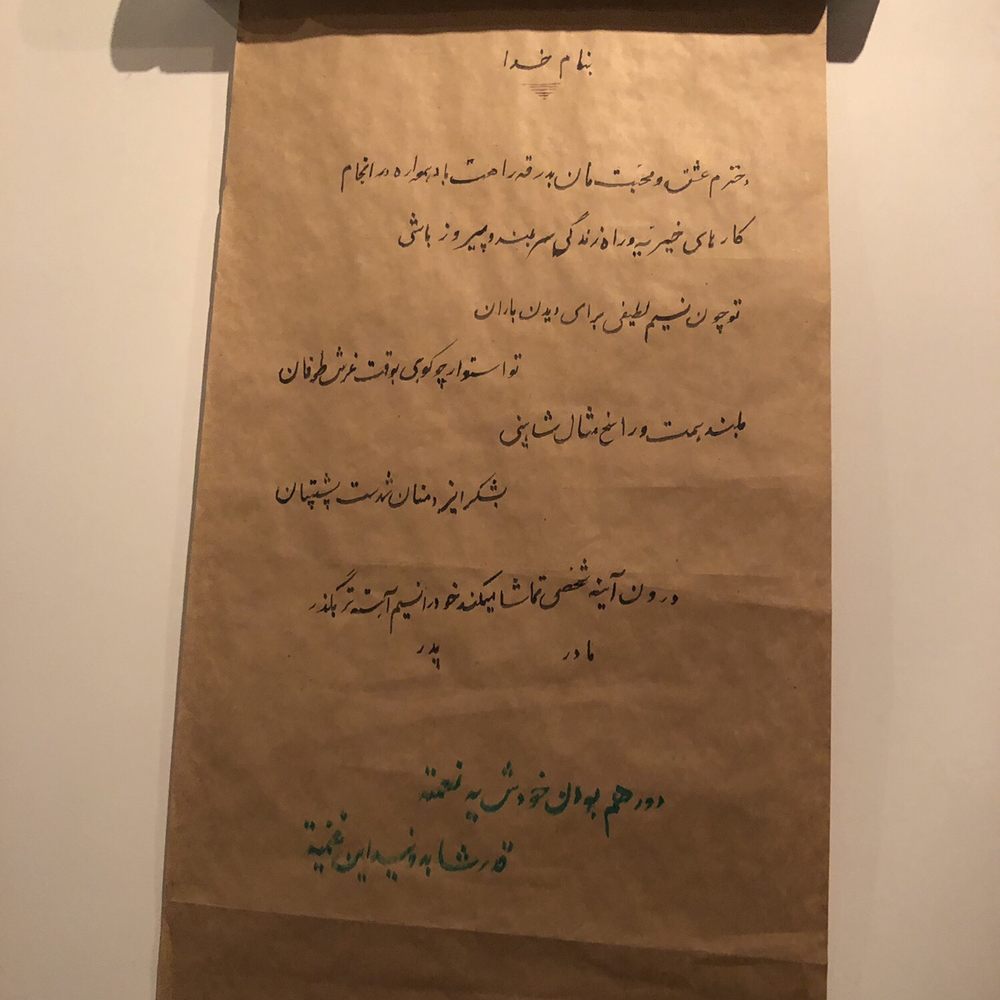 بنام خدا
دخترم عشق و محبت مان بدرقه راهت باد همواره در انجام
کارهای خیریه و راه زندگی سربلند و پیروز باشی
تو چون نسیم لطیفی برای دیدن باران
تو استوار چو کوهی بوقت غرش طوفان
بلند همت و راسخ مثال شاهینی
بشکر ایزد منان شدست پشتیبان
درون آینه شخصی تماشا میکند خود را نسیم آهسته تر بگذر
مادر پدر
دور هم بودن خودش یه نعمته
قدرشا بدونید این غنیمته